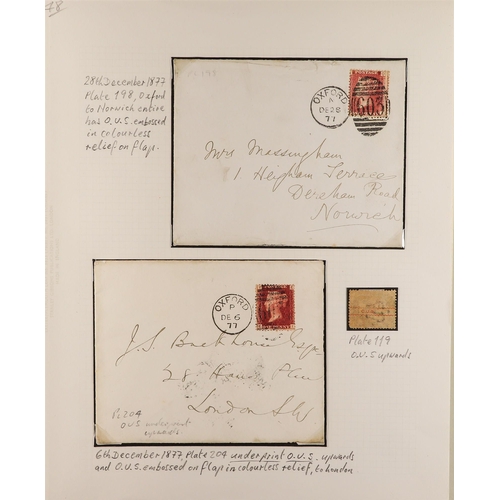 48
28th December 1877
Plate 198, Oxford
to Norwich entire
has O.U.S. embossed
in colourless
relief on flap.
Pl 198
OXFORD
A
DE 28
77
603
Mrs Massingham
1 Heigham Terrace
Dereham Road
Norwich
OXFORD
P
DE 6
77
J. S. Backhouse Esqre
28 Hans Place
London SW
PL 204
OUS underprint
upwards
Plate 119
O.U.S upwards
6th December 1877 Plate 204 underprint O.U.S. upwards
and O.U.S. embossed on flap in colourless relief, to London.